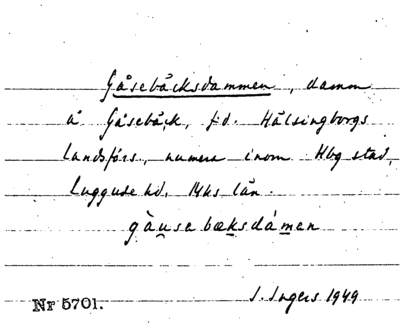 Gåsebäcksdammen, damm
å Gåsebäck, f.d. Hälsingborgs
landsförs., numera inom Hbg stad,
Luggude hd, Mhs län.
gàu̯sebæksdámen
Nr 5701.
I. Ingers 1949